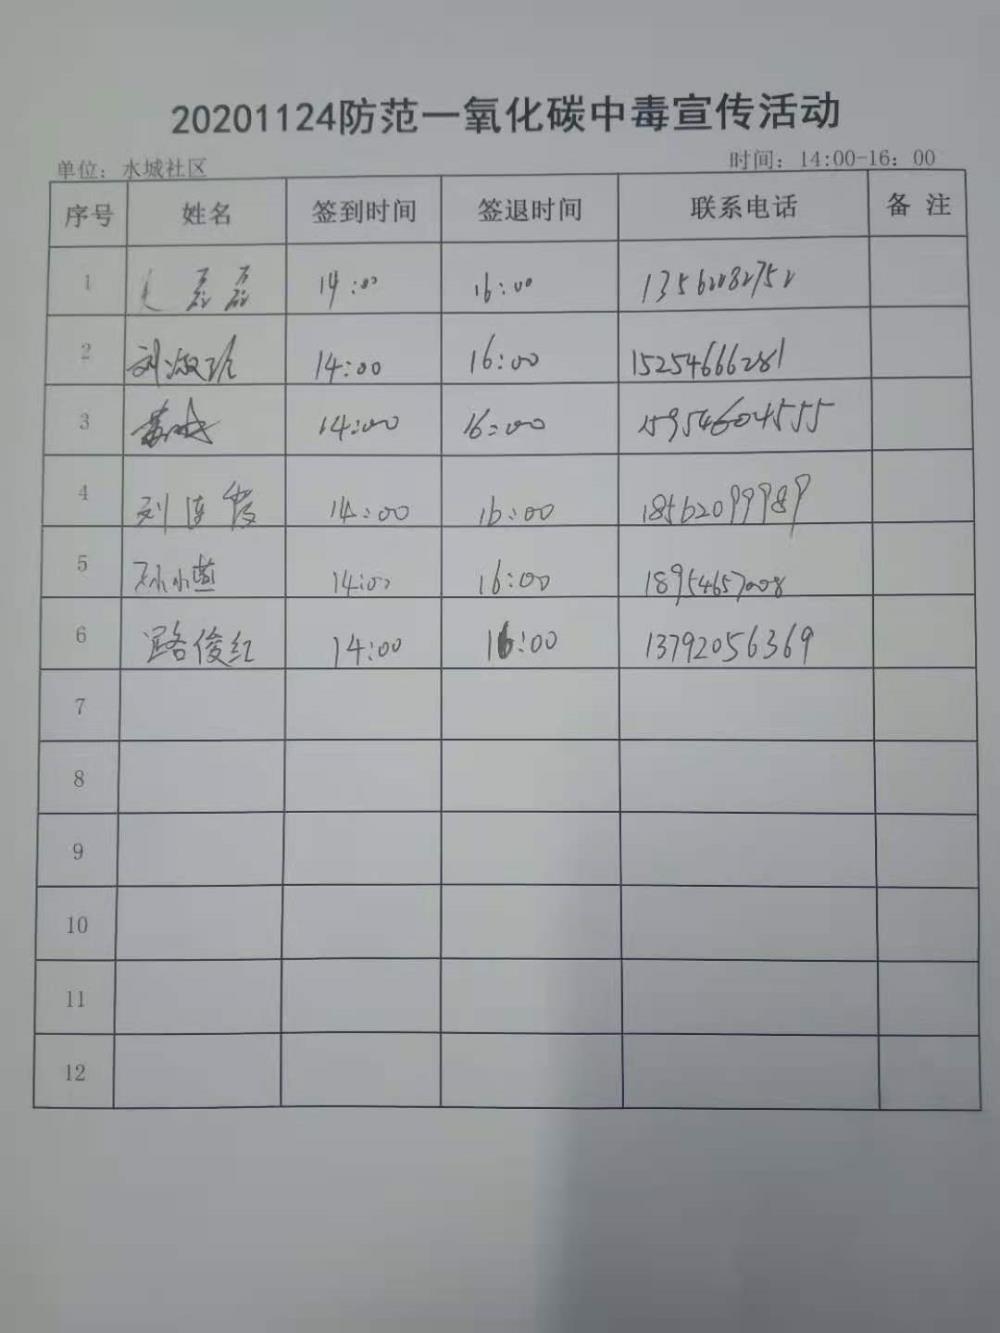 20201124防范一氧化碳中毒宣传活动
单位：水城社区 时间：14:00-16：00
序号 姓名 签到时间 签退时间 联系电话 备 注
1 磊磊 14:00 16:00
2 刘淑玲 14:00 16:00 15254666281
3 14:00 16:00 15954604555
4 刘连霞 14:00 16:00 18562099989
5 孙小燕 14:00 16:00 18954657008
6 路俊红 14:00 16:00 13792056369
7
8
9
10
11
12